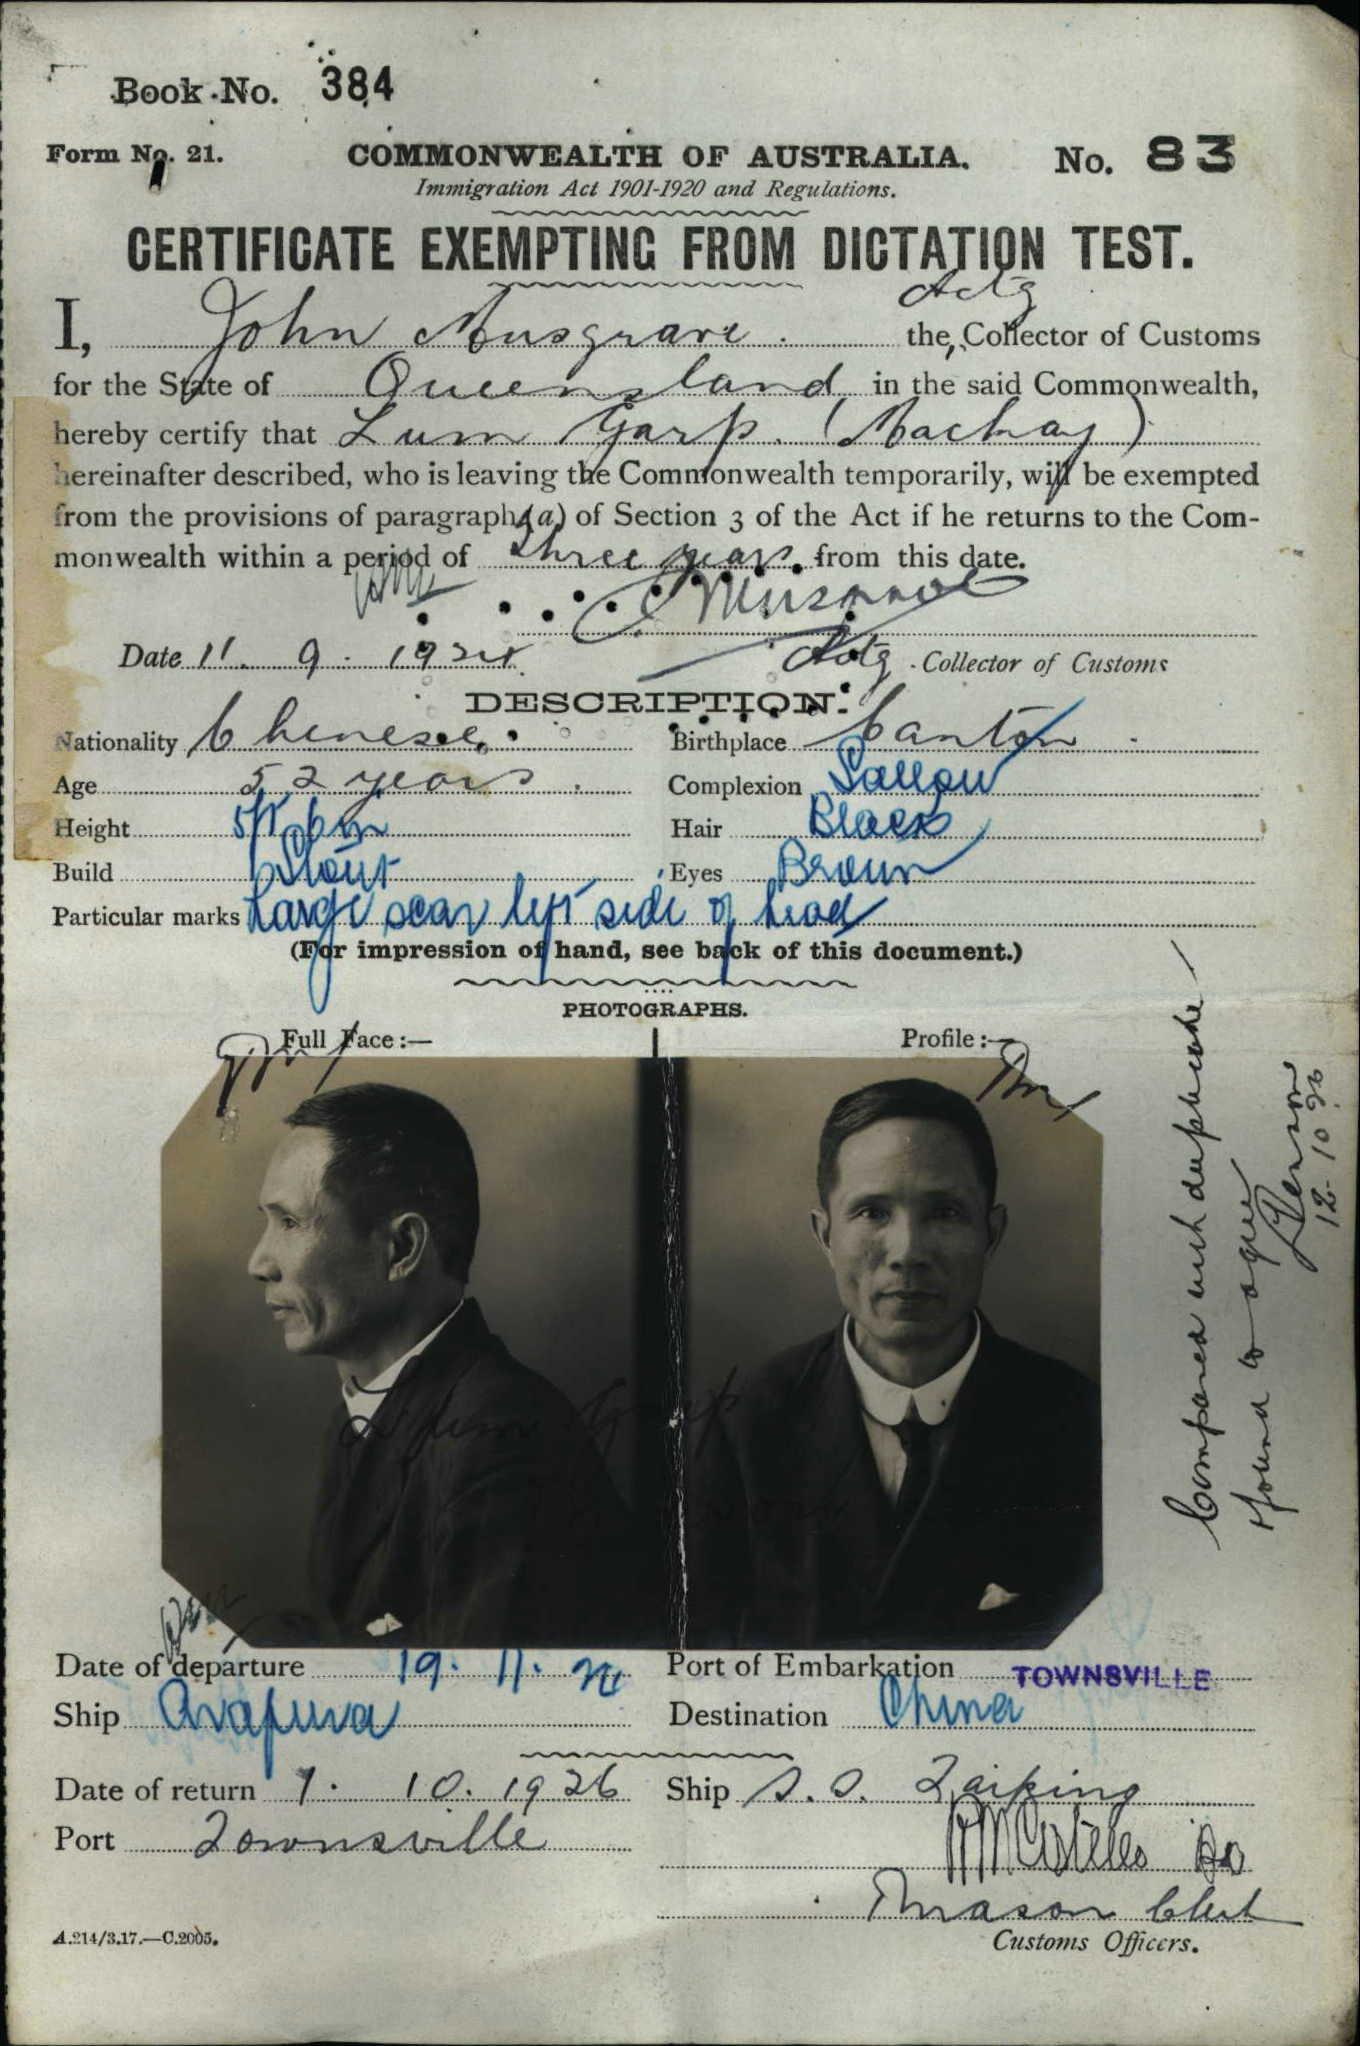 Book No. 384
Form No. 21.
COMMONWEALTH OF AUSTRALIA.
No. 83
Immigration Act 1901-1920 and Regulations.
CERTIFICATE EXEMPTING FROM DICTATION TEST.
Actg
I, John Musgrave the, Collector of Customs
for the State of Queensland in the said Commonwealth,
hereby certify that Lum Garp. (Mackay)
hereinafter described, who is leaving the Commonwealth temporarily, will be exempted
from the provisions of paragraph (a) of Section 3 of the Act if he returns to the Com-
monwealth within a period of three years from this date.
Musgrave
Date 11. 9. 1924
Actg. Collector of Customs
DESCRIPTION.
Nationality Chinese
Birthplace Canton
Age 52 years.
Complexion Sallow
Height 5ft 6in
Hair Black
Build Stout
Eyes Brown
Particular marks Large scar left side of head
(For impression of hand, see back of this document.)
PHOTOGRAPHS.
Full Face:—
Profile:—
Lum Garp
Compared with duplicate
found to agree
12-10-26
Date of departure 19. 11. 24
Port of Embarkation TOWNSVILLE
Ship Arafura
Destination China
Date of return 1. 10. 1926
Ship S.S. Taiping
Port Townsville
Costello
Mason Clerk
Customs Officers.
A.214/3.17.—C.2005.